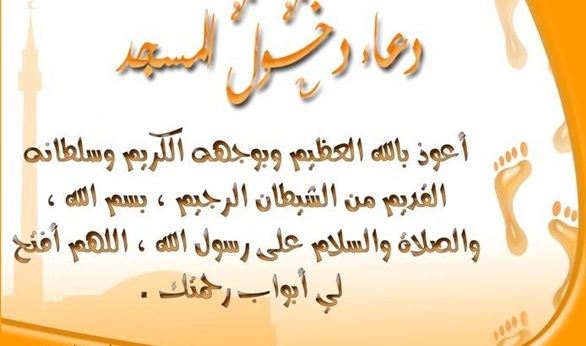 دعاء دخول المسجد
أعوذ بالله العظيم وبوجهه الكريم وسلطانه
القديم من الشيطان الرجيم ، بسم الله ،
والصلاة والسلام على رسول الله ، اللهم أفتح
لي أبواب رحمتك .